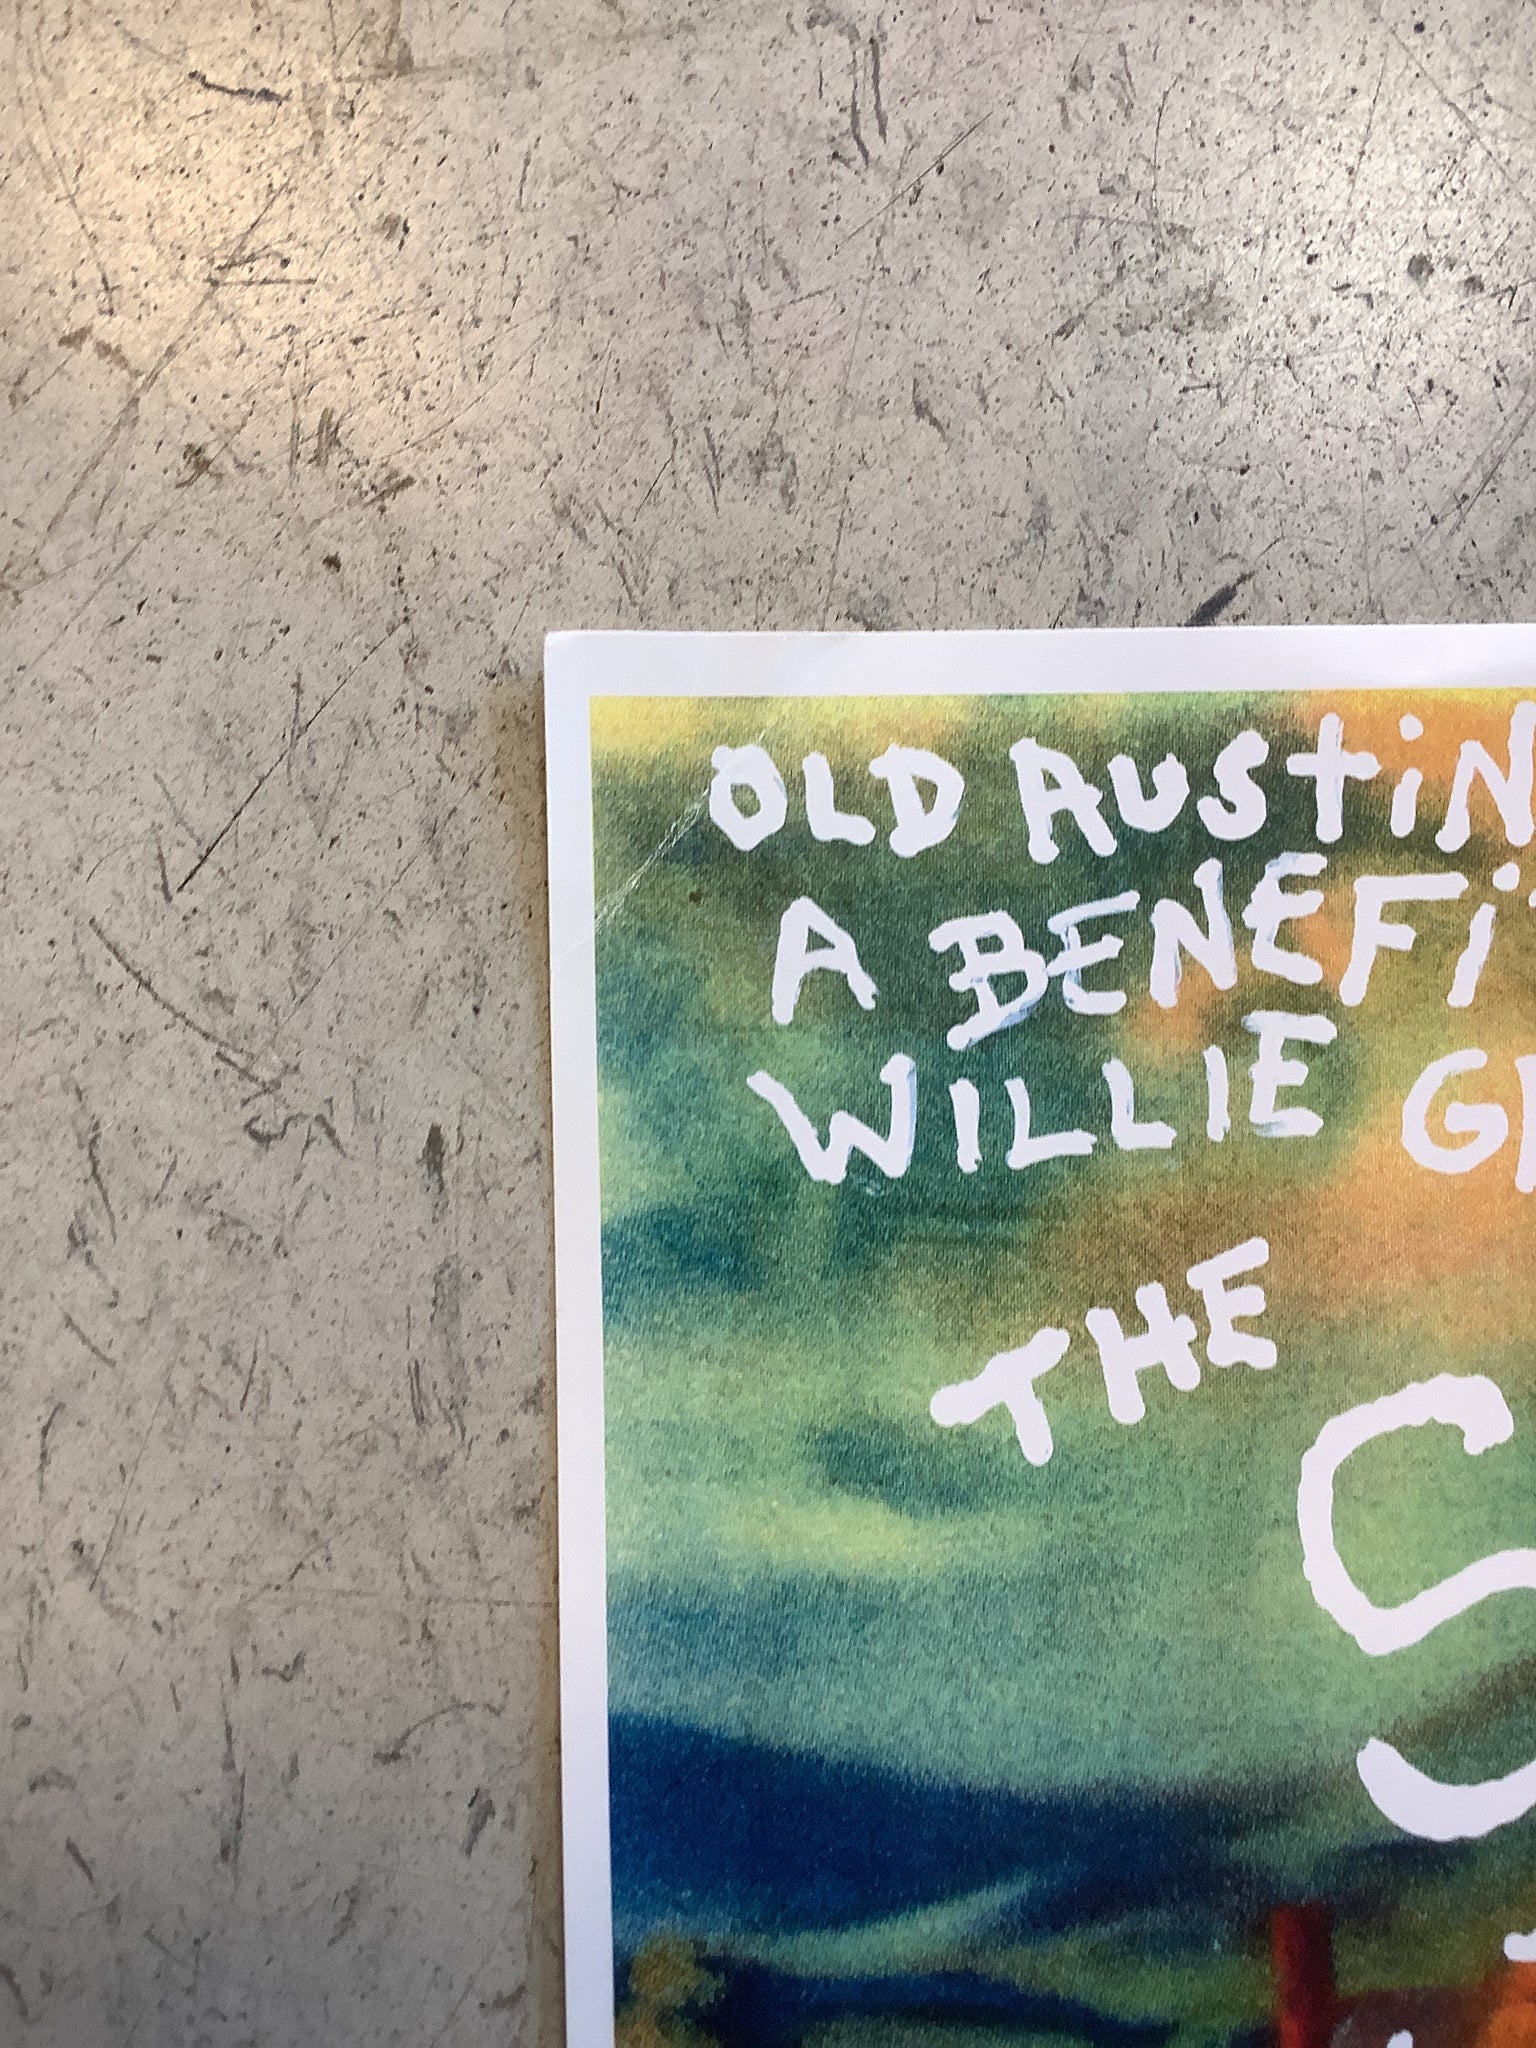 OLD AUSTiN
A BENEFi
WILLIE G
THE
S